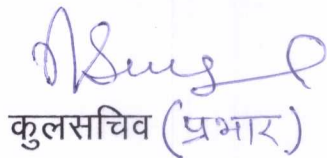 कुलसचिव (प्रभार)